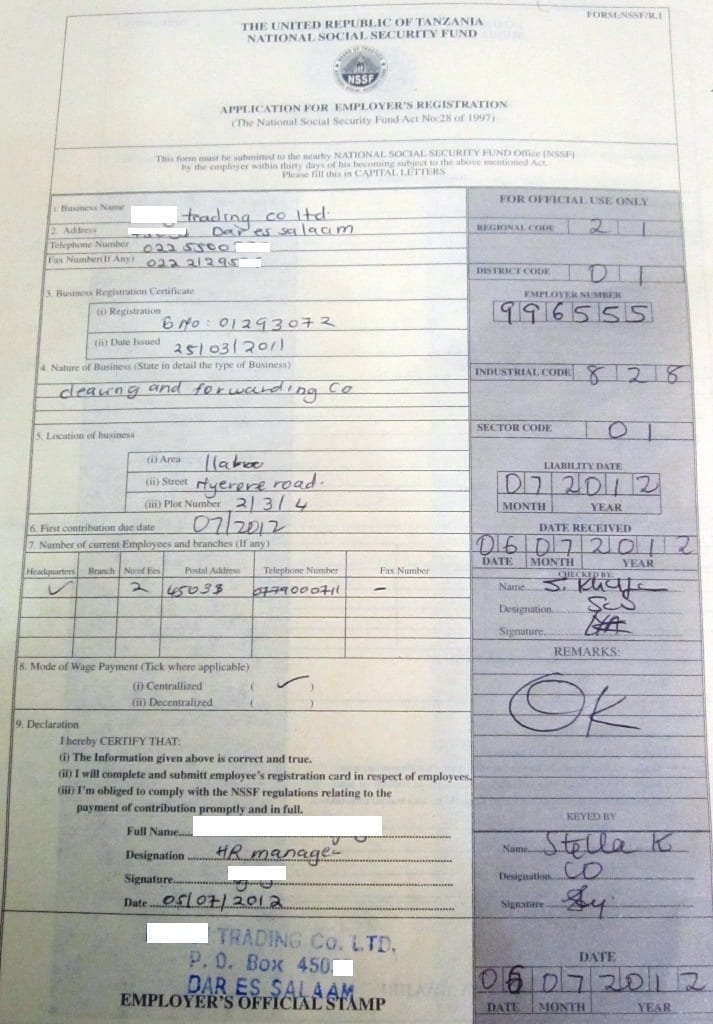 FORM:NSSF/R.1
THE UNITED REPUBLIC OF TANZANIA
NATIONAL SOCIAL SECURITY FUND
NSSF
APPLICATION FOR EMPLOYER'S REGISTRATION
(The National Social Security Fund Act No:28 of 1997)
This form must be submitted to the nearby NATIONAL SOCIAL SECURITY FUND Office [NSSF]
by the employer within thirty days of his becoming subject to the above mentioned Act.
Please fill this in CAPITAL LETTERS
1. Business Name trading co ltd.
2. Address Dar es salaam
Telephone Number 022 5500
Fax Number(If Any) 022 21295
3. Business Registration Certificate
(i) Registration
No: 01293072
(ii) Date Issued 25/03/2011
4. Nature of Business (State in detail the type of Business)
clearing and forwarding Co
5. Location of business
(i) Area Ilala
(ii) Street Nyerere road.
(iii) Plot Number 2/3/4
6. First contribution due date 07/2012
7. Number of current Employees and branches (If any)
Headquarters Branch No:of Ees Postal Address Telephone Number Fax Number
✓ 2 45033 0779000711 –
8. Mode of Wage Payment (Tick where applicable)
(i) Centrallized ( ✓ )
(ii) Decentralized ( )
9. Declaration
I hereby CERTIFY THAT:
(i) The Information given above is correct and true.
(ii) I will complete and submitt employee's registration card in respect of employees.
(iii) I'm obliged to comply with the NSSF regulations relating to the
payment of contribution promptly and in full.
Full Name
Designation HR manager
Signature
Date 05/07/2012
TRADING Co. LTD.
P. O. Box 450
DAR ES SALAAM
EMPLOYER'S OFFICIAL STAMP
FOR OFFICIAL USE ONLY
REGIONAL CODE 2 1
DISTRICT CODE 0 1
EMPLOYER NUMBER
996555
INDUSTRIAL CODE 8 2 8
SECTOR CODE 0 1
LIABILITY DATE
07 2012
MONTH YEAR
DATE RECEIVED
06 07 2012
DATE MONTH YEAR
CHECKED BY:
Name S.
Designation
Signature
REMARKS:
OK
KEYED BY
Name Stella K
Designation CO
Signature
DATE
06 07 2012
DATE MONTH YEAR